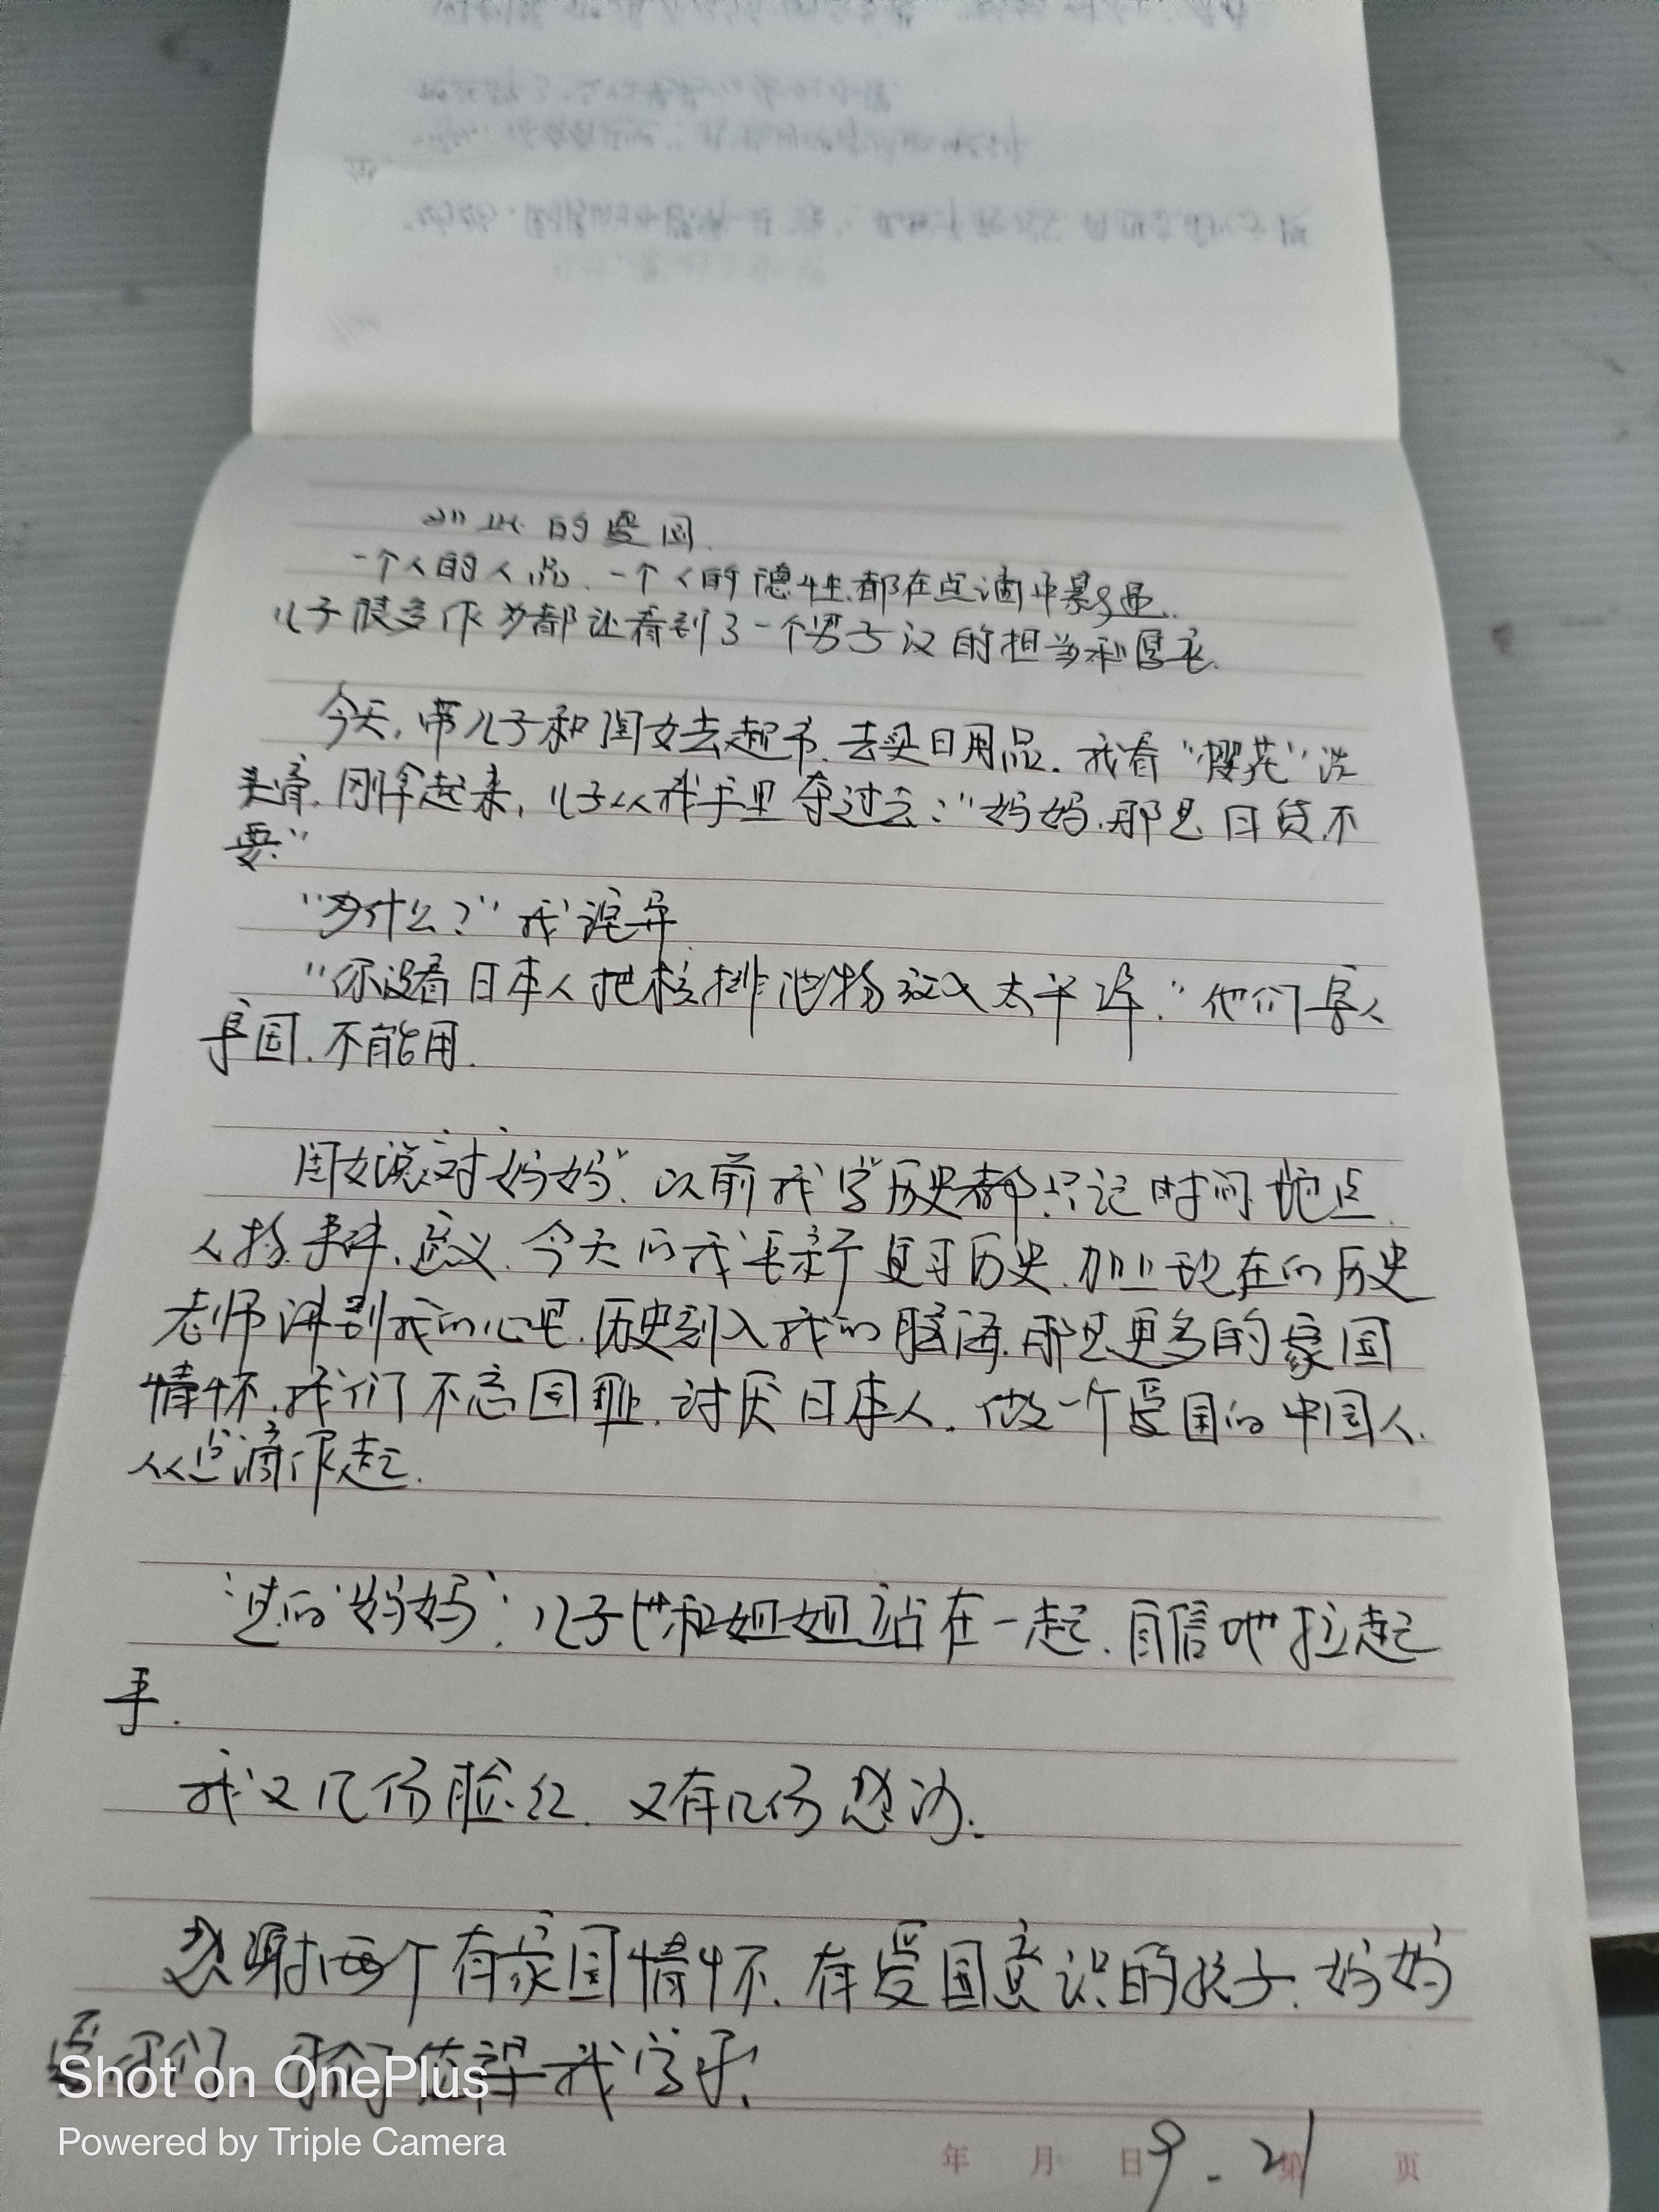 的爱国.
一个人的人品.一个人的德性.都在点滴中彰显.
儿子很多作为都让看到了一个男子汉的担当和
今天,带儿子和闺女去超市.去买日用品.我看"樱花"洗
头膏.刚拿起来,儿子从我手里夺过去:"妈妈.那是日货.不
要."
"为什么?"我诧异.
"你没看日本人把核排泄物放入太平洋."他们害人
害国.不能用.
闺女说对妈妈".以前我学历史都只记时间.地点.
人物.事件.意义.今天的我重新复习历史.加上现在的历史
老师讲到我的心里.历史刻入我的脑海.那是更多的家国
情怀.我们不忘国耻.讨厌日本人.做一个爱国的中国人.
从点滴作起.
"是的"妈妈":儿子也和姐姐站在一起.自信地拉起
手.
我又几份脸红.又有几份感动.
感谢两个有家国情怀.有爱国意识的孩子.妈妈
你们.你们值得我学习!
年 月 日 第 页
9.21
Shot on OnePlus
Powered by Triple Camera